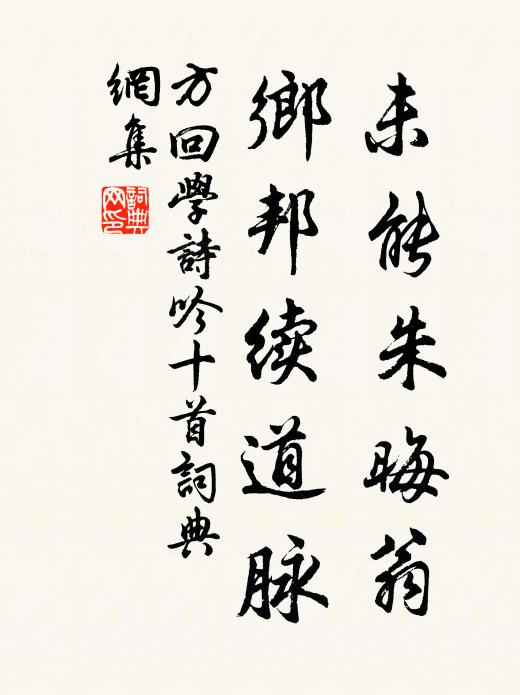 未能朱晦翁
鄉邦续道脉
方回學詩吟十首詞典
網集
詞典网印